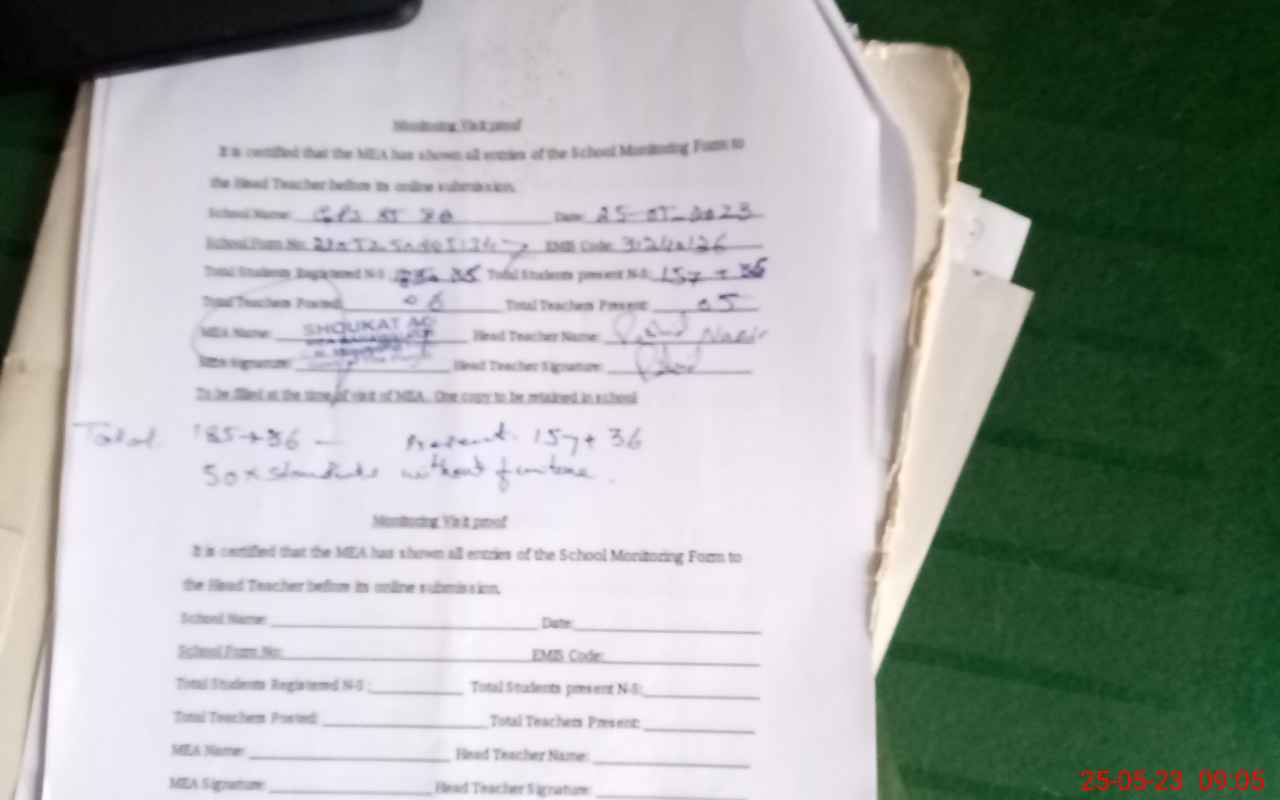 Monitoring Visit proof
It is certified that the MEA has shown all entries of the School Monitoring Form to
the Head Teacher before its online submission.
School Name: GPS Date: 25-05-2023
School Form No: EMIS Code:
Total Students Registered N-5: Total Students present N-5: 157 + 36
Total Teachers Posted: 06 Total Teachers Present: 05
MEA Name: SHOUKAT Head Teacher Name: Nasir
MEA Signature: Head Teacher Signature:
To be filled at the time of visit of MEA. One copy to be retained in school
Total 185+36 — Present. 157+ 36
50 x students without furniture.
Monitoring Visit proof
It is certified that the MEA has shown all entries of the School Monitoring Form to
the Head Teacher before its online submission.
School Name: Date:
School Form No: EMIS Code:
Total Students Registered N-5 : Total Students present N-5:
Total Teachers Posted: Total Teachers Present:
MEA Name: Head Teacher Name:
MEA Signature: Head Teacher Signature:
25-05-23 09:05